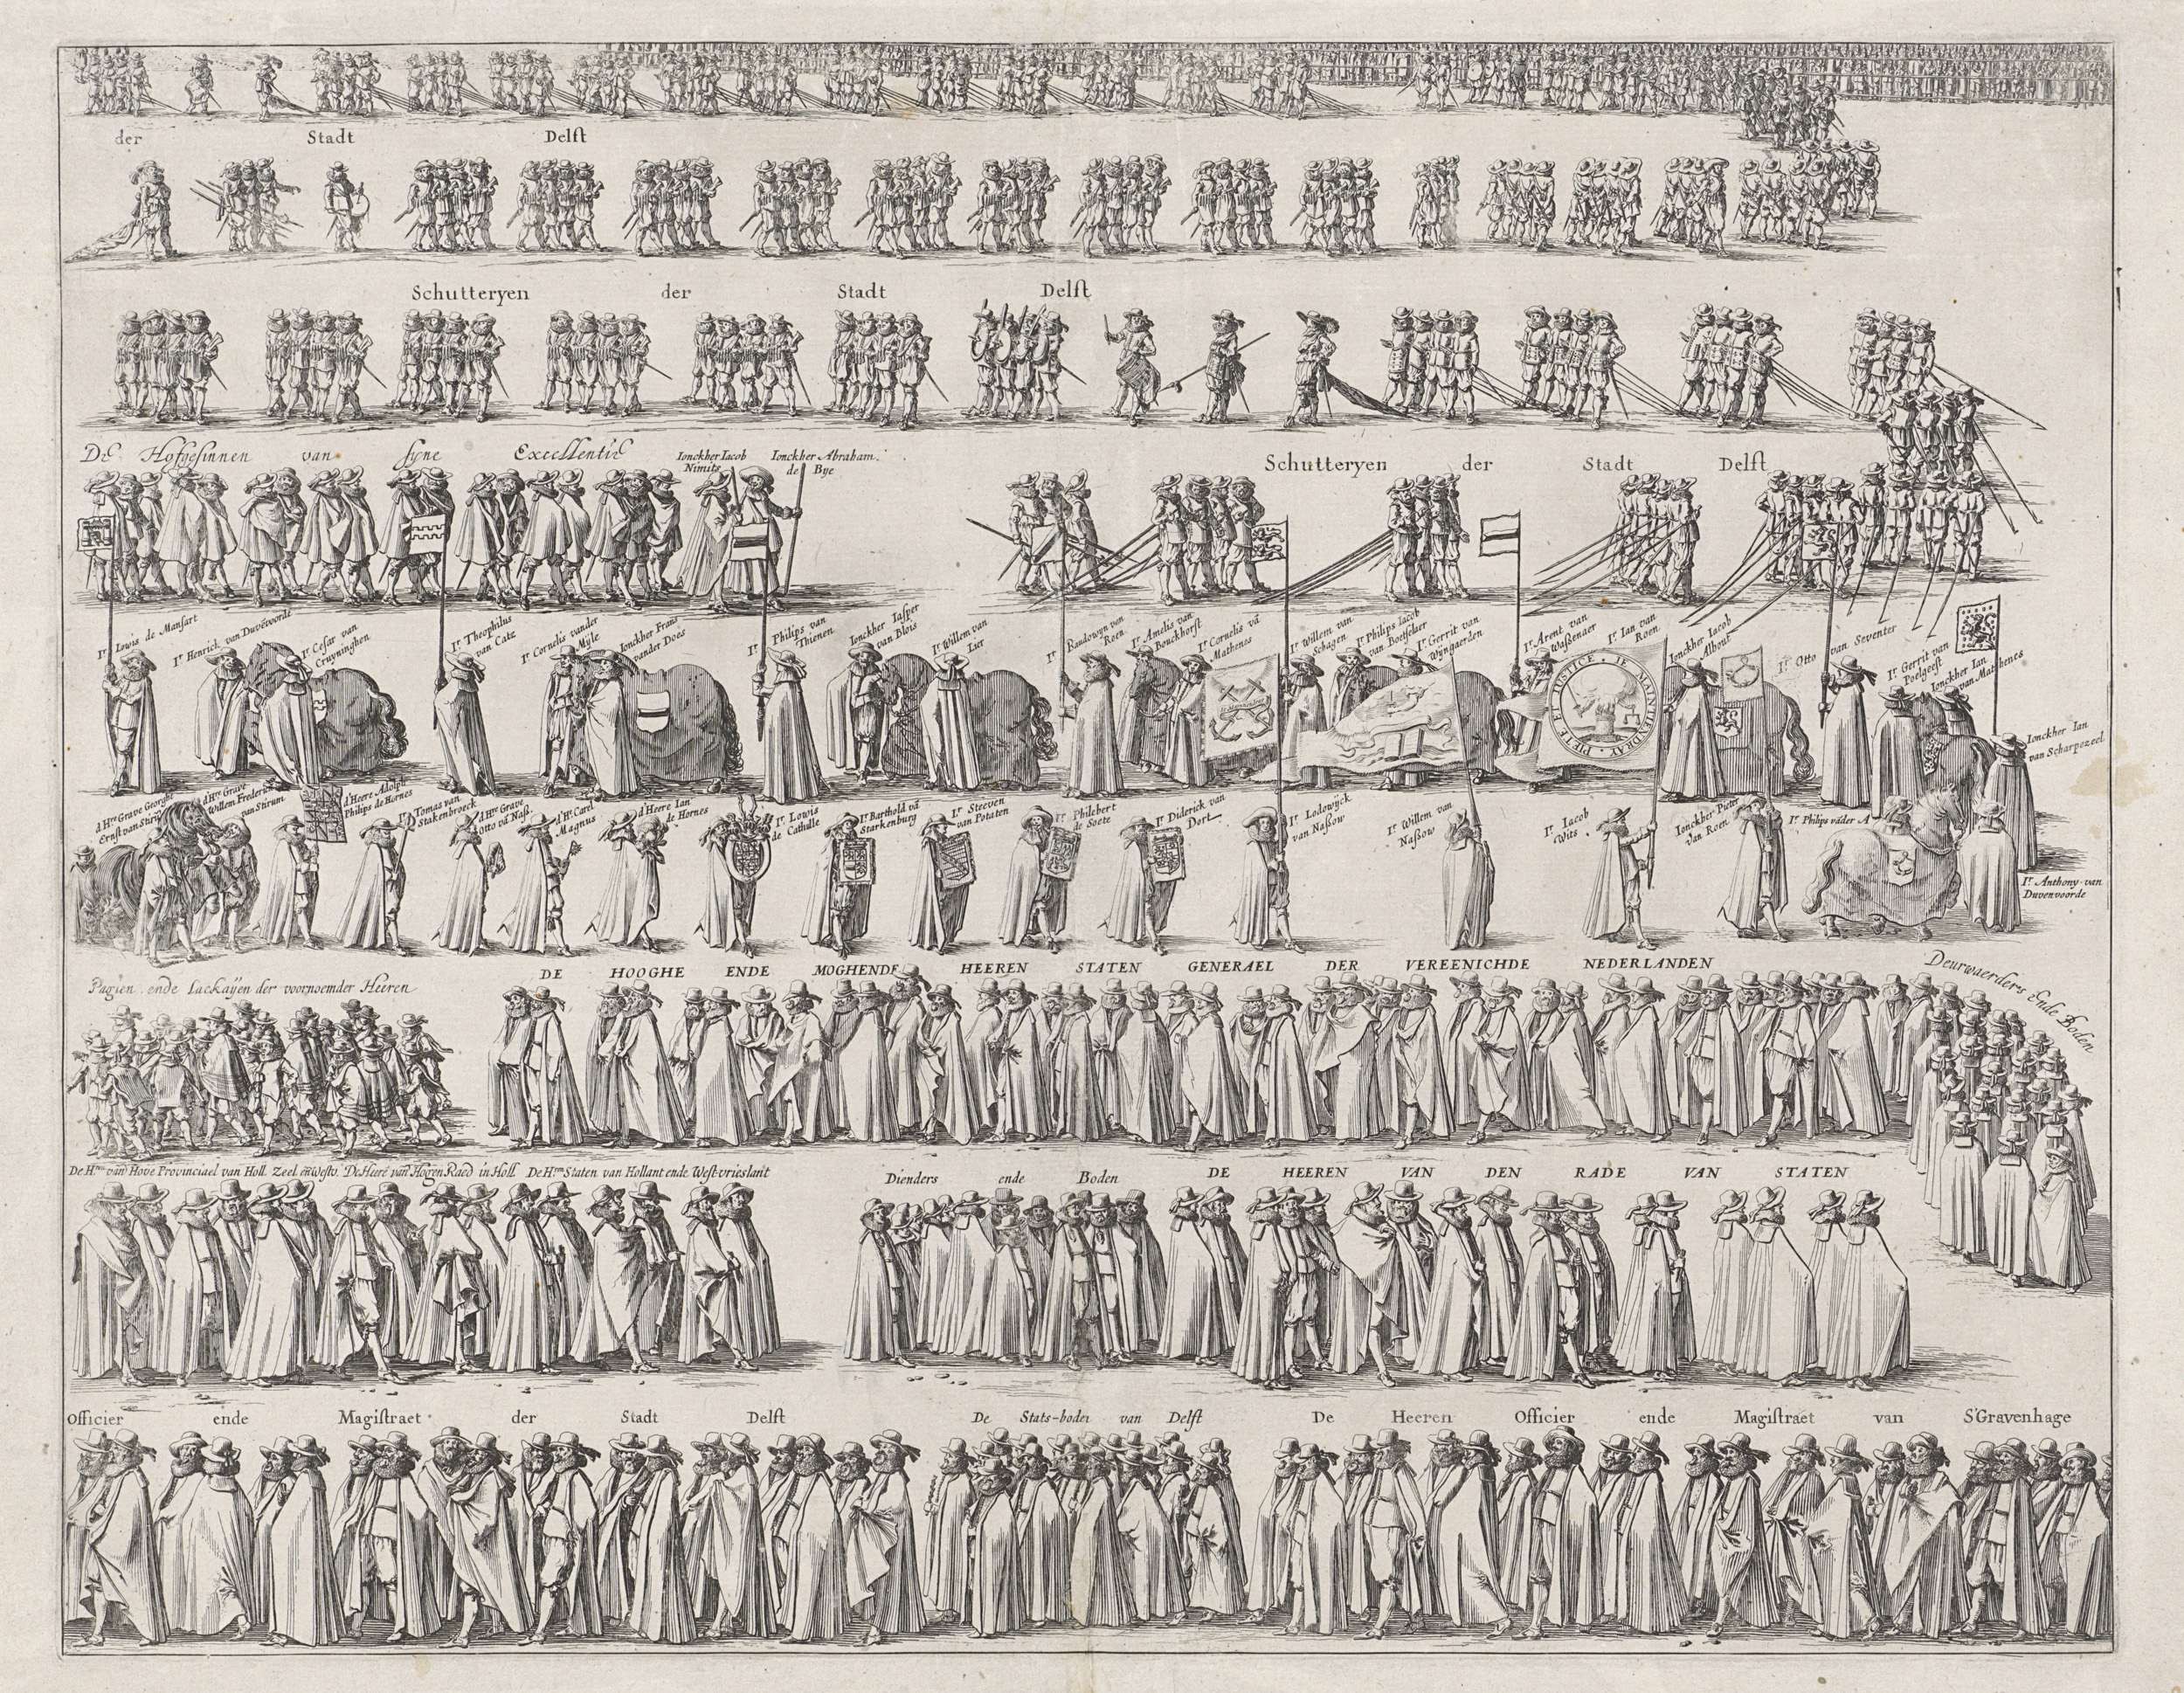 der Stadt Delft
Schutteryen der Stadt Delft
De Hofgesinnen van syne Excellentie
Jonckher Iacob Nimits
Jonckher Abraham de Bye
Schutteryen der Stadt Delft
Ir. Lowis de Mansart
Ir. Henrick van Duvevoorde
Ir. Cesar van Cruyninghen
Ir. Theophilus van Catz
Ir. Cornelis vander Mijle
Jonckher Frans vander Does
Ir. Philips van Thienen
Jonckher Iasper van Blois
Ir. Willem van Lier
Ir. Baudowyn van Roen
Ir. Amelis van Bouckhorst
Ir. Cornelis vā Mathenes
Ir. Willem van Schagen
Ir. Philips Iacob van Boetselaer
Ir. Gerrit van Wyngaerden
Ir. Arent van Waßenaer
Ir. Ian van Roen
PIETE ET IUSTICE · JE MAINTIENDRAY
Jonckher Iacob
Ir. Otto van Seventer
Ir. Gerrit van Poelgeest
Jonckher Ian van Mathenes
Jonckher Ian van Scharpezeel
d'Hre Grave Georghe Ernst van Stirum
d'Hre Grave Willem Frederick van Stirum
d'Heere Adolph Philips de Hornes
Ir. Tomas van Stakenbroeck
d'Hre Grave Otto vā Naß.
d'Hr. Carel Magnus
d'Heere Ian de Hornes
Ir. Lowis de Cathille
Ir. Barthold vā Starkenburg
Ir. Steeven van Potaten
Ir. Philebert de Soete
Ir. Diderick van Dort
Ir. Lodowijck van Naßow
Ir. Willem van Naßow
Ir. Iacob Wits
Jonckher Pieter van Roen
Ir. Philips vāder A
Ir. Anthony van Duvenvoorde
Pagien ende Lackayen der voornoemder Heeren
DE HOOGHE ENDE MOGHENDE HEEREN STATEN GENERAEL DER VEREENICHDE NEDERLANDEN
Deurwaerders Ende Boden
De Hren van Hove Provinciael van Holl. Zeel. en Westv. De Heere van Hogen Raed in Holl. De Hren Staten van Hollant ende West-vrieslant
Dienders ende Boden
DE HEEREN VAN DEN RADE VAN STATEN
Officier ende Magistraet der Stadt Delft
De Stats-boden van Delft
De Heeren Officier ende Magistraet van S'Gravenhage